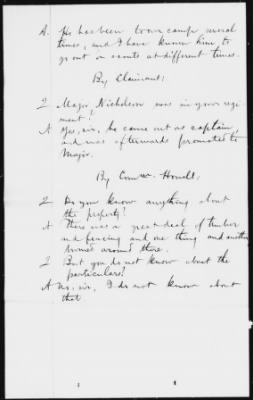 A. He has been to our camp several
times, and I have known him to
go out on scouts at different times.
By Claimant;
Q Major Nicholson was in your regi
ment?
A Yes, sir, he came out as captain,
and was afterwards promoted to
Major.
By Comr. Howell;
Q Do you know anything about
the property?
A There was a great deal of timber
and fencing and one thing and another
around there.
Q But you do not know about the
particulars?
A No, sir, I do not know about
that.